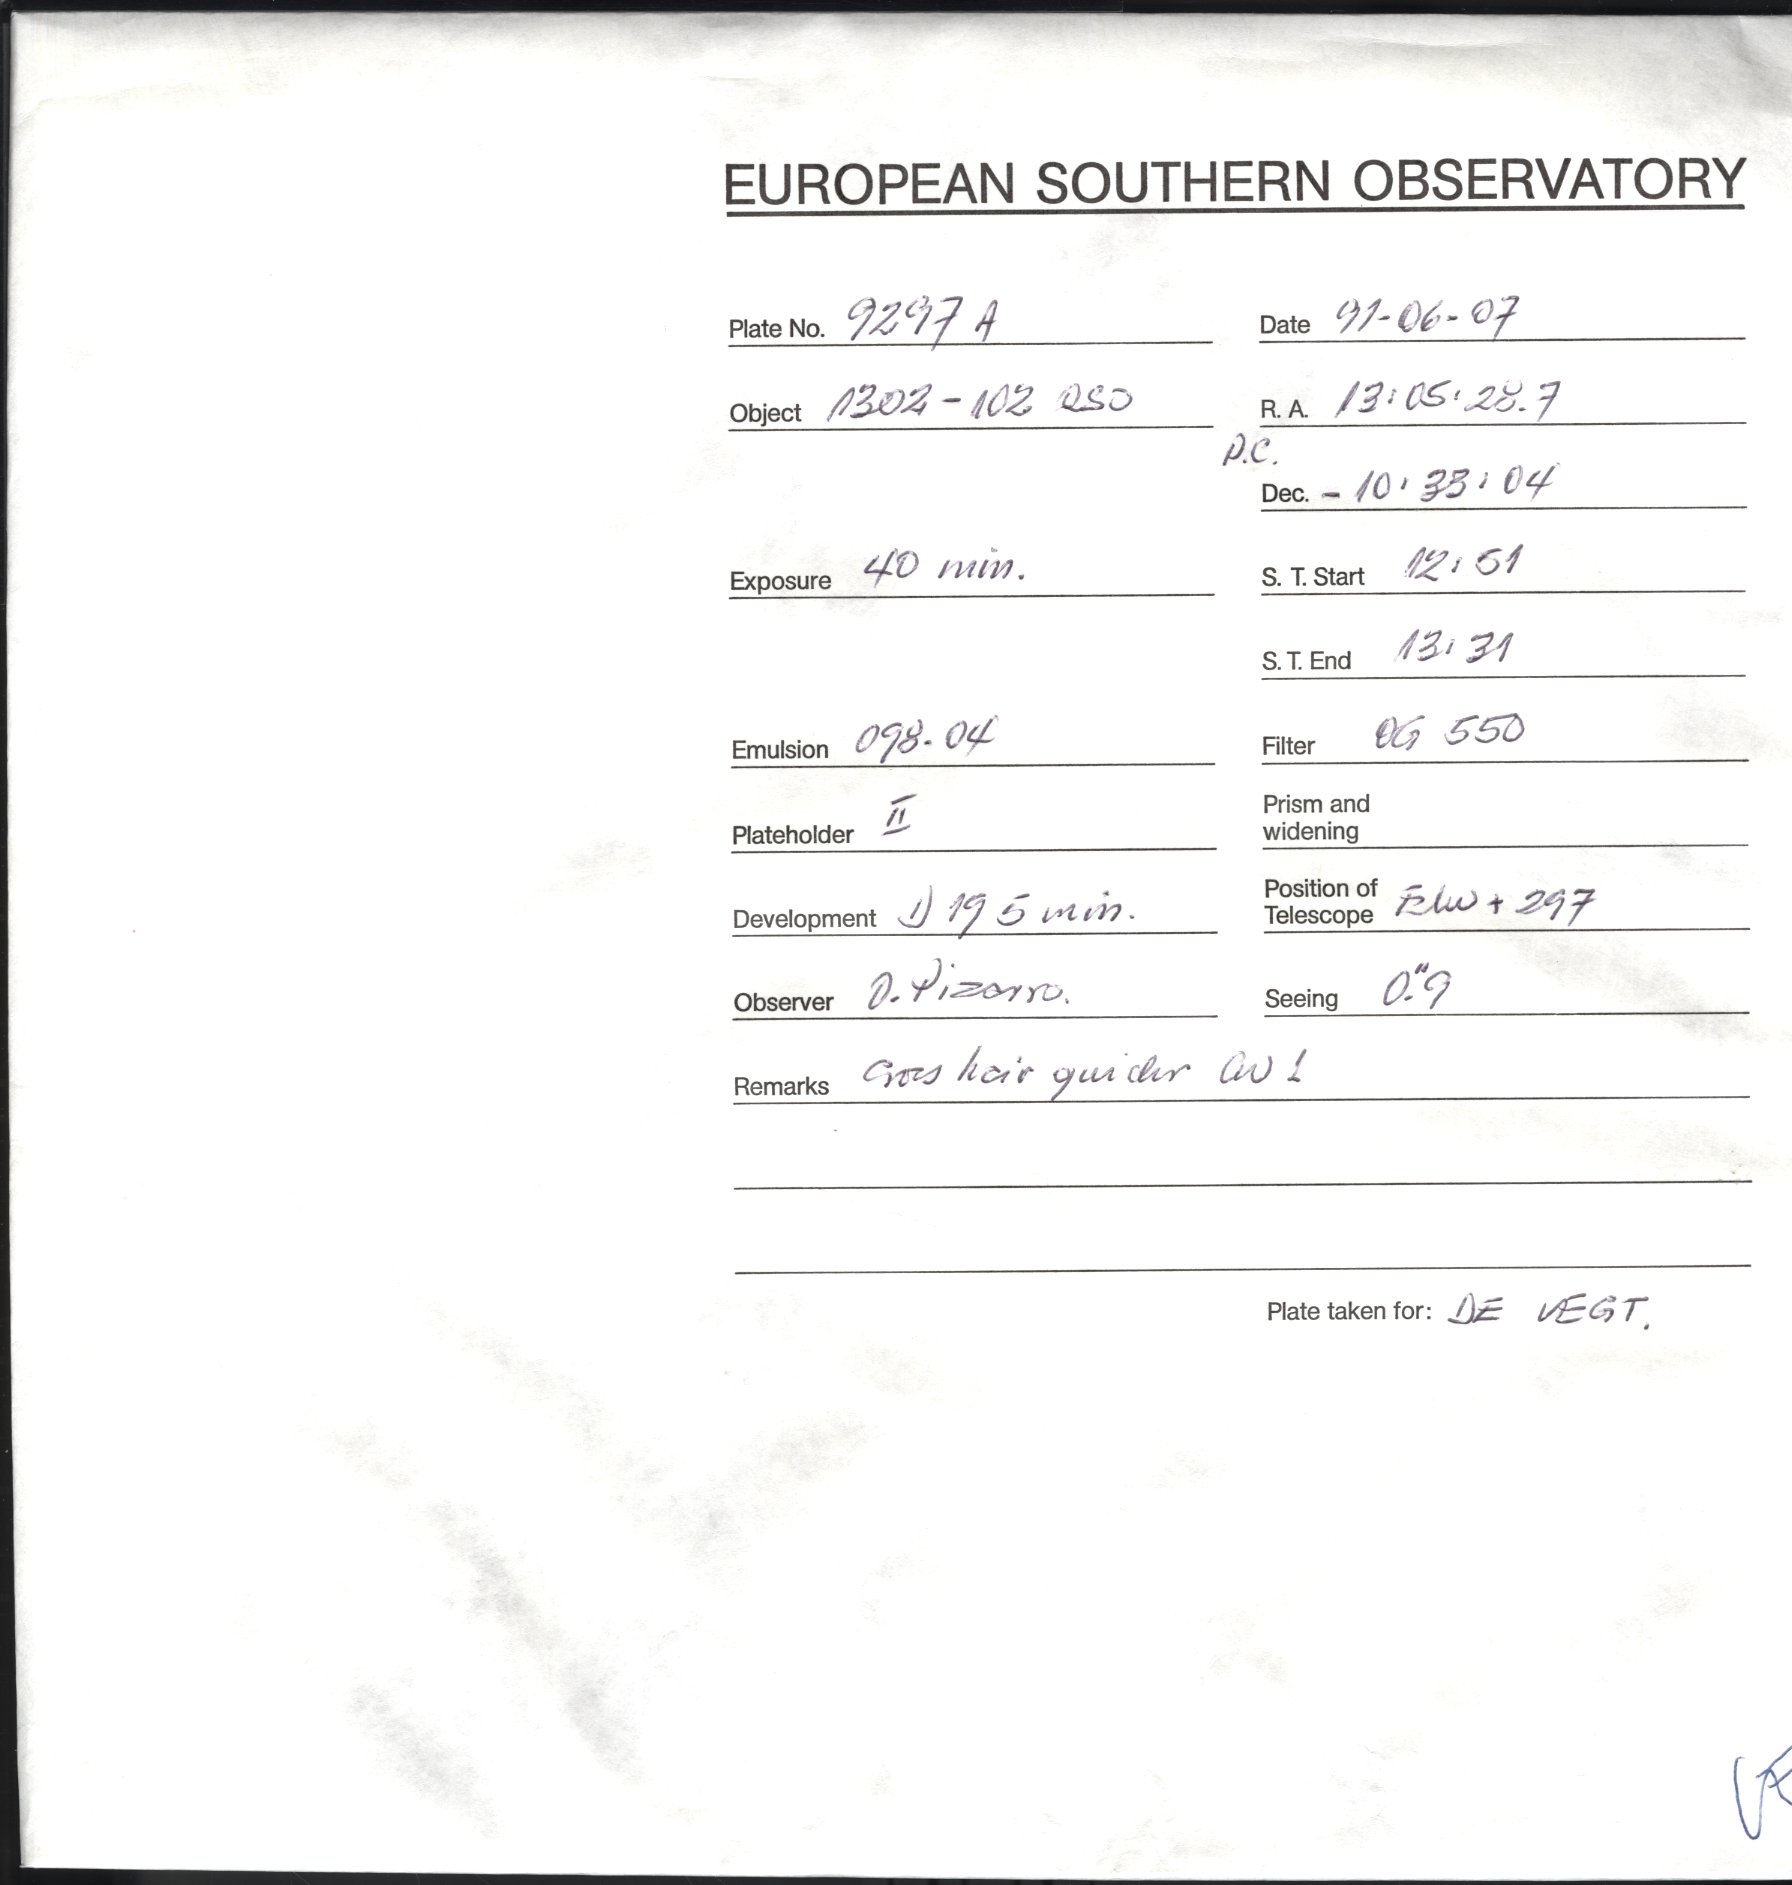 EUROPEAN SOUTHERN OBSERVATORY
Plate No. 9297 A
Date 91-06-07
Object 1302-102 QSO
R. A. 13:05:28.7
P.C.
Dec. - 10:33:04
Exposure 40 min.
S. T. Start 12:51
S. T. End 13:31
Emulsion 098-04
Filter OG 550
Plateholder II
Prism and
widening
Development D 19 5 min.
Position of
Telescope + 297
Observer O. Pizarro.
Seeing 0."9
Remarks Cros hair guider
Plate taken for: DE VEGT.